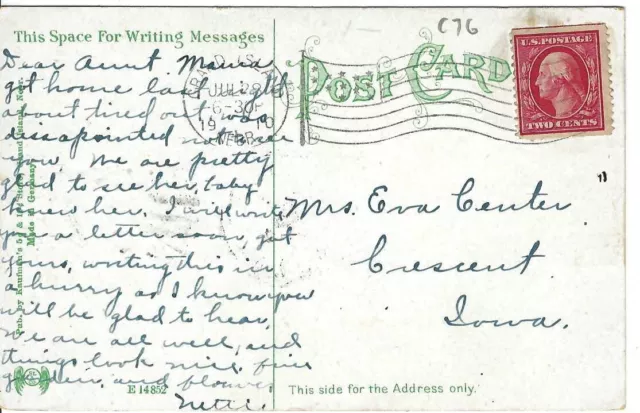 C76
This Space For Writing Messages
POST CARD
U.S. POSTAGE
TWO CENTS
GRAND ISLAND
JUL
6-30P
1910
NEBR.
Dear Aunt Mama
got home last night
about tired out was
dissapointed not see
you. We are pretty
glad to see her, baby
knew her. I will write
you a letter soon, got
yours, writing this in
a hurry as I know you
will be glad to hear.
we are all well, and
things look nice, fine
garden, and flowers
Nettie.
Mrs. Eva Center
Crescent
Iowa.
Pub. by Kaufmann's 5 & 10c Store, Grand Island, Nebr.
Made in Germany
E 14852
This side for the Address only.